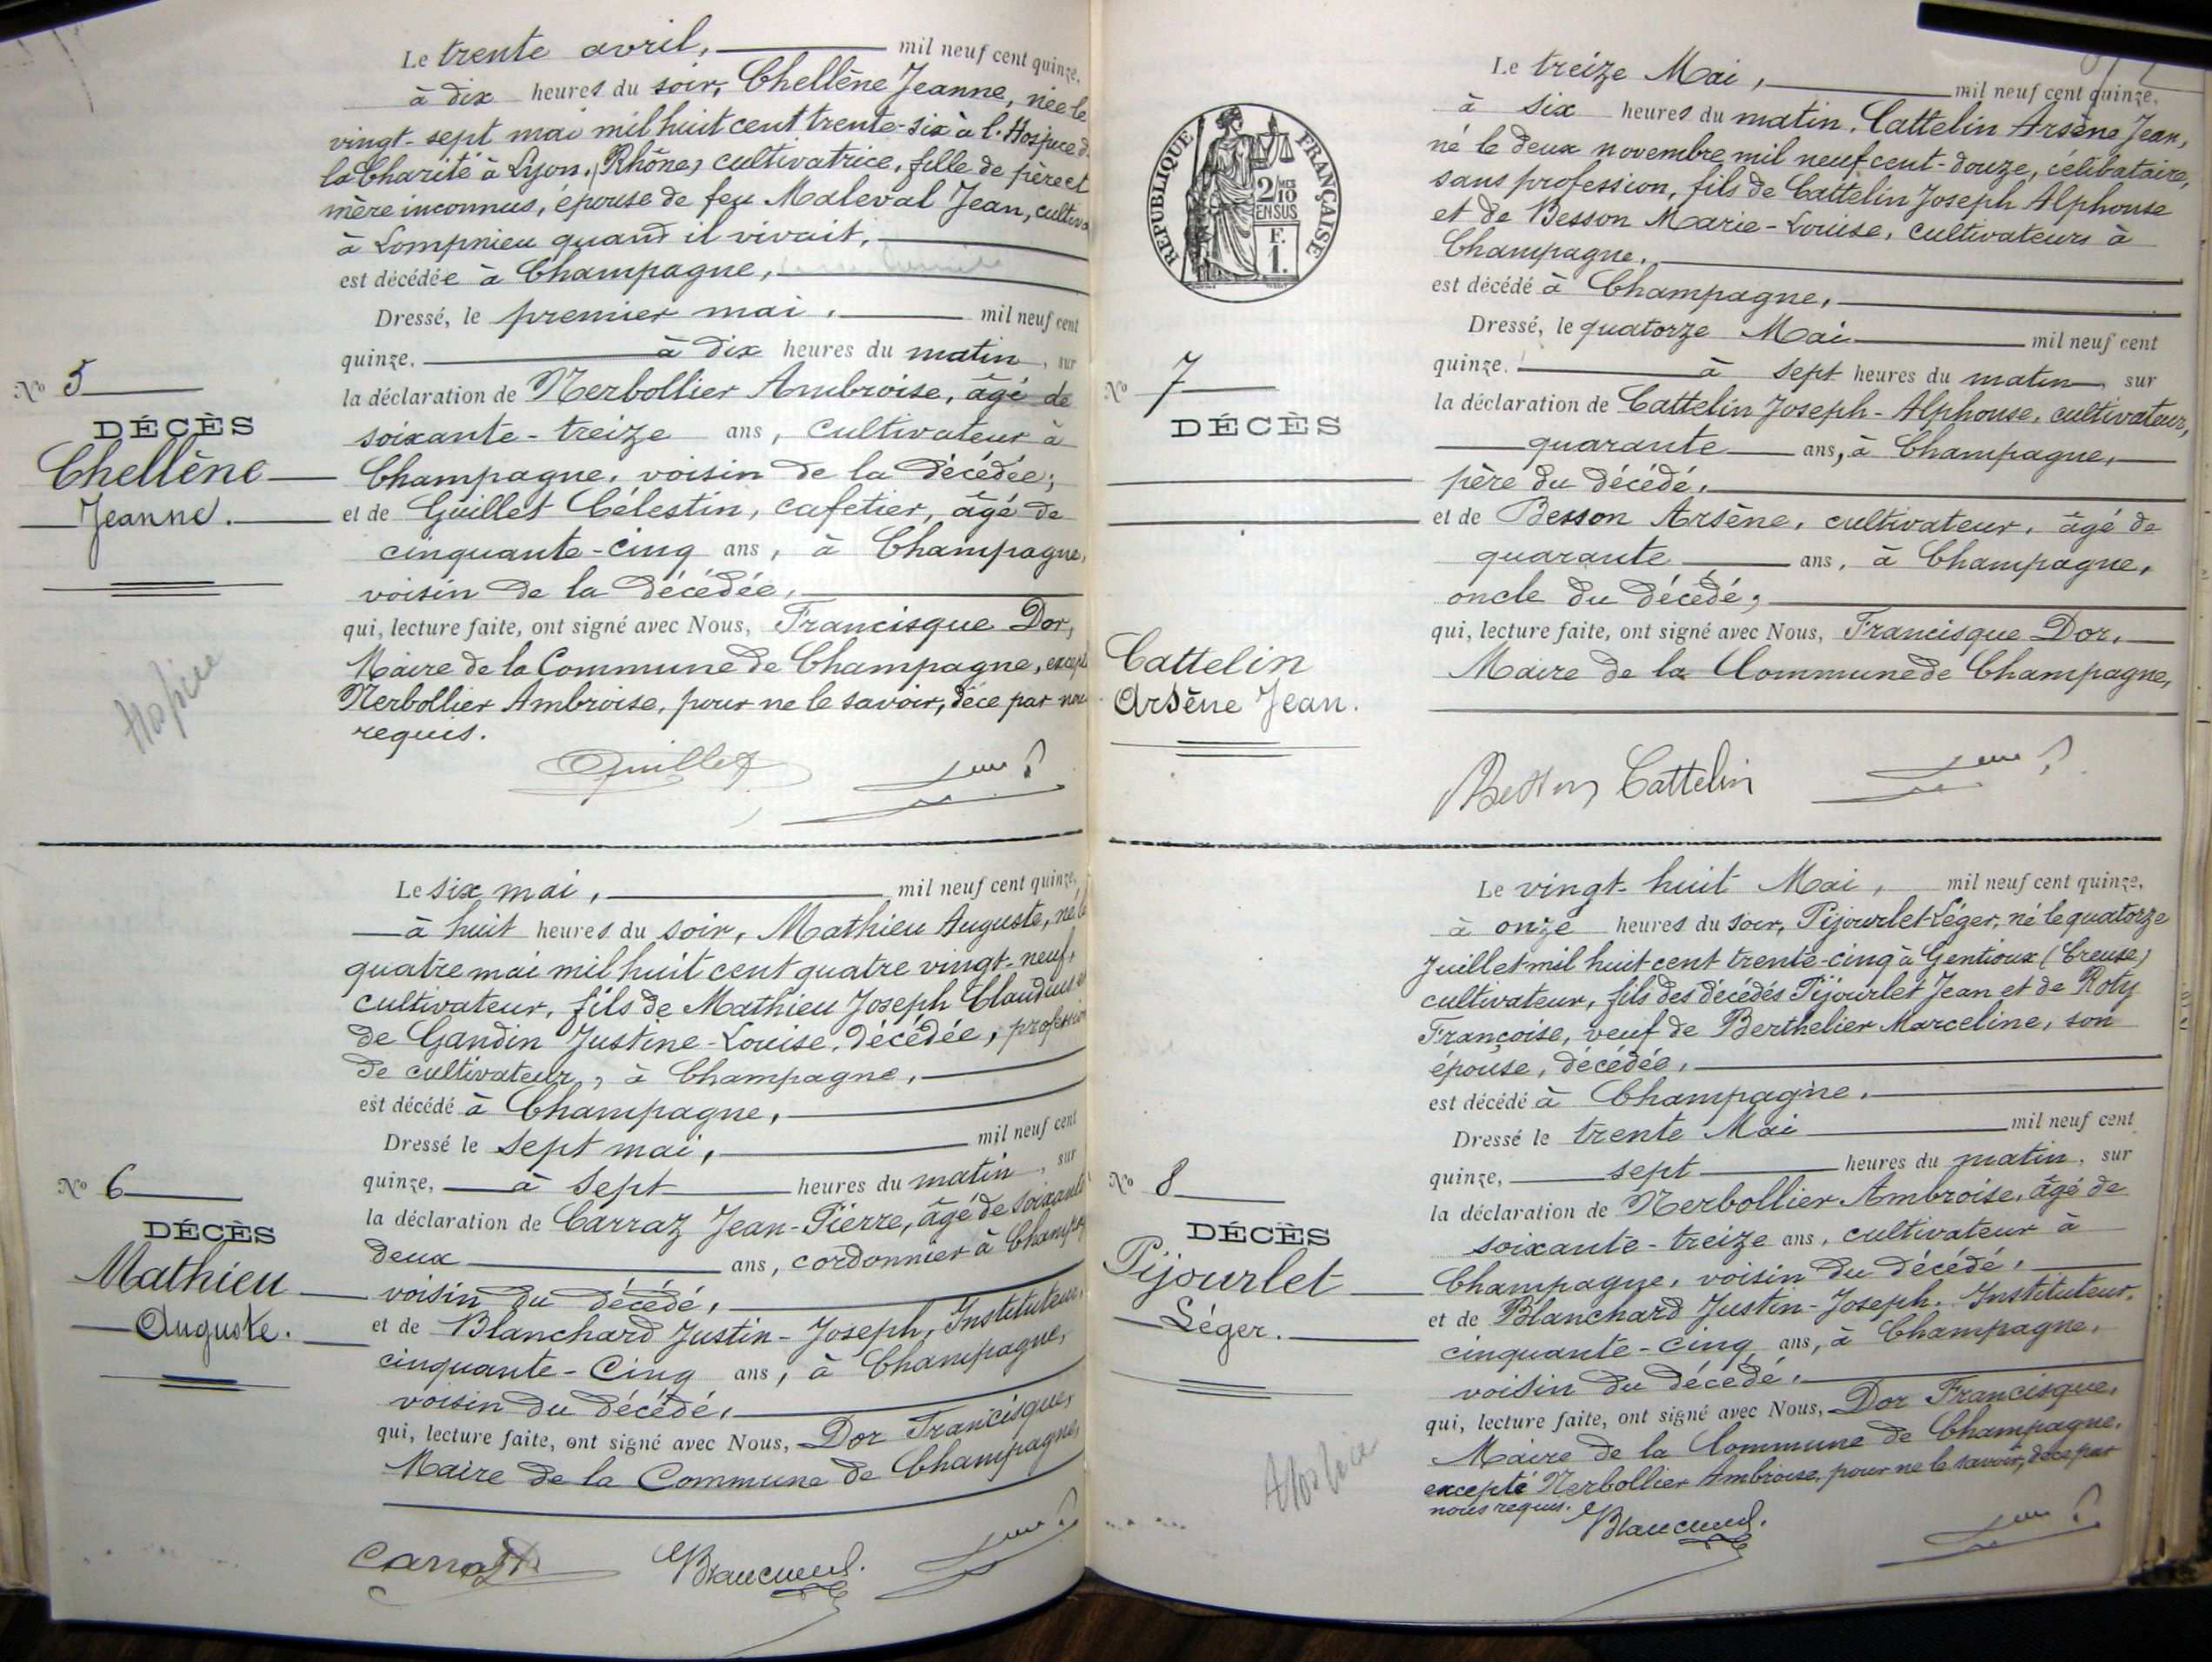 Le trente avril, mil neuf cent quinze,
à dix heures du soir, Chellène Jeanne, née le
vingt-sept mai mil huit cent trente-six à l'Hospice d
la Charité à Lyon, (Rhône) cultivatrice, fille de père et
mère inconnus, épouse de feu Maleval Jean, cultiva
à Lompnieu quand il vivait,
est décédée à Champagne,
Dressé, le premier mai, mil neuf cent
quinze. à dix heures du matin, sur
la déclaration de Nerbollier Ambroise, âgé de
soixante-treize ans, cultivateur à
Champagne, voisin de la décédée;
et de Guillet Célestin, cafetier, âgé de
cinquante-cinq ans, à Champagne,
voisin de la décédée,
qui, lecture faite, ont signé avec Nous, Francisque Dor,
Maire de la Commune de Champagne, excepté
Nerbollier Ambroise, pour ne le savoir, de ce par nous
requis.
Guillet
No 5
DÉCÈS
Chellène
Jeanne.
Hospice
Le six mai, mil neuf cent quinze,
à huit heures du soir, Mathieu Auguste, né le
quatre mai mil huit cent quatre vingt-neuf,
cultivateur, fils de Mathieu Joseph Claudius et
de Gandin Justine-Louise, décédée, profession
de cultivateur, à Champagne,
est décédé à Champagne,
Dressé le sept mai, mil neuf cent
quinze, à sept heures du matin, sur
la déclaration de Carraz Jean-Pierre, âgé de soixante
deux ans, cordonnier à Champag
voisin du décédé,
et de Blanchard Justin-Joseph, Instituteur,
cinquante-cinq ans, à Champagne,
voisin du décédé,
qui, lecture faite, ont signé avec Nous, Dor Francisque,
Maire de la Commune de Champagne,
Carraz Blanchard.
No 6
DÉCÈS
Mathieu
Auguste.
RÉPUBLIQUE FRANÇAISE
2/10
EN SUS
F.
1.
Le treize Mai, mil neuf cent quinze,
à six heures du matin, Cattelin Arsène Jean,
né le deux novembre mil neuf cent-douze, célibataire,
sans profession, fils de Cattelin Joseph Alphonse
et de Besson Marie-Louise, cultivateurs à
Champagne,
est décédé à Champagne,
Dressé, le quatorze Mai mil neuf cent
quinze. à sept heures du matin, sur
la déclaration de Cattelin Joseph-Alphonse, cultivateur,
quarante ans, à Champagne,
père du décédé,
et de Besson Arsène, cultivateur, âgé de
quarante ans, à Champagne,
oncle du décédé,
qui, lecture faite, ont signé avec Nous, Francisque Dor,
Maire de la Commune de Champagne,
Besson Cattelin
No 7
DÉCÈS
Cattelin
Arsène Jean.
Le vingt-huit Mai, mil neuf cent quinze,
à onze heures du soir, Pijourlet Léger, né le quatorze
Juillet mil huit cent trente-cinq à Gentioux (Creuse)
cultivateur, fils des décédés Pijourlet Jean et de Roty
Françoise, veuf de Berthelier Marceline, son
épouse, décédée,
est décédé à Champagne.
Dressé le trente Mai mil neuf cent
quinze, sept heures du matin, sur
la déclaration de Nerbollier Ambroise, âgé de
soixante-treize ans, cultivateur à
Champagne, voisin du décédé,
et de Blanchard Justin-Joseph, Instituteur,
cinquante-cinq ans, à Champagne,
voisin du décédé,
qui, lecture faite, ont signé avec Nous, Dor Francisque,
Maire de la Commune de Champagne,
excepté Nerbollier Ambroise, pour ne le savoir, de ce par
nous requis. Blanchard.
No 8
DÉCÈS
Pijourlet
Léger.
Hospice